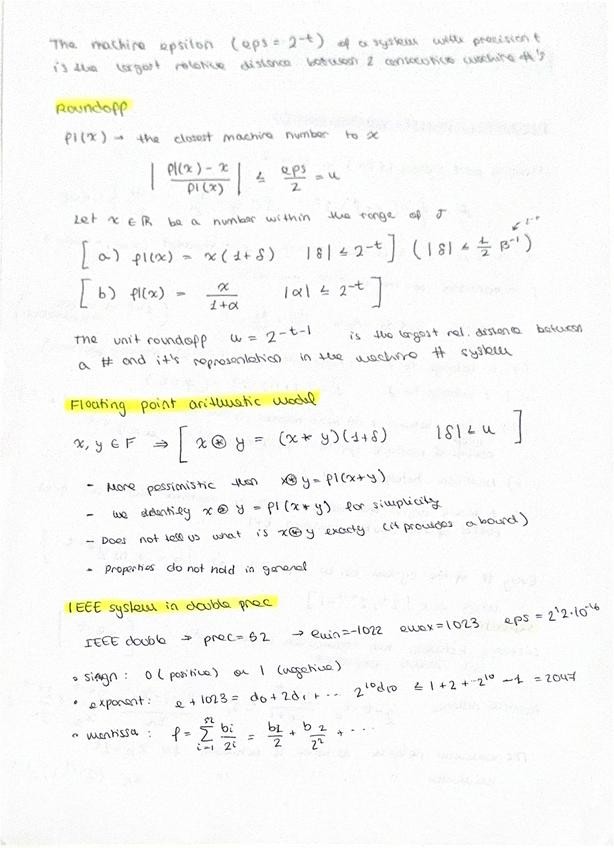 The machine epsilon (eps = 2^-t) of a system with precision t
is the largest relative distance between 2 consecutive machine #'s
Roundoff
fl(x) → the closest machine number to x
| (fl(x) - x) / fl(x) | ≤ eps/2 = u
Let x ∈ ℝ be a number within the range of F
[ a) fl(x) = x(1+δ) |δ| ≤ 2^-t ] (|δ| ≤ 1/2 β^-1)
[ b) fl(x) = x/(1+α) |α| ≤ 2^-t ]
The unit roundoff u = 2^-t-1 is the largest rel. distance between
a # and it's representation in the machine # system
Floating point arithmetic model
x, y ∈ F ⇒ [ x ⊛ y = (x * y)(1+δ) |δ| ≤ u ]
- More pessimistic than x⊛y = fl(x*y)
- we identify x ⊛ y = fl(x*y) for simplicity
- Does not tell us what is x⊛y exactly (it provides a bound)
- Properties do not hold in general
IEEE system in double prec
IEEE double → prec = 52 → emin=-1022 emax=1023 eps = 2'2·10^-16
• sign : 0 (positive) or 1 (negative)
• exponent : e + 1023 = d0 + 2d1 + ... 2^10 d10 ≤ 1 + 2 + ··2^10 - 1 = 2047
• mantissa : f = Σ_{i=1}^{52} bi/2^i = b1/2 + b2/2^2 + ...